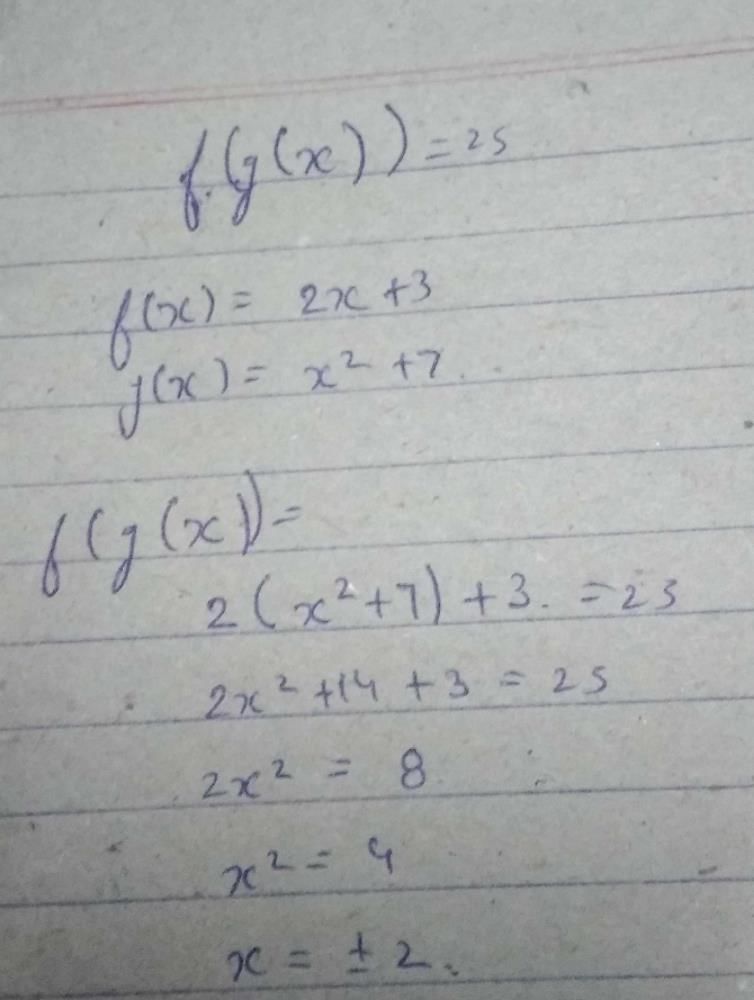 f(g(x)) = 25
f(x) = 2x + 3
g(x) = x² + 7.
f(g(x)) =
2(x² + 7) + 3. = 25
2x² + 14 + 3 = 25
2x² = 8
x² = 4
x = ± 2.